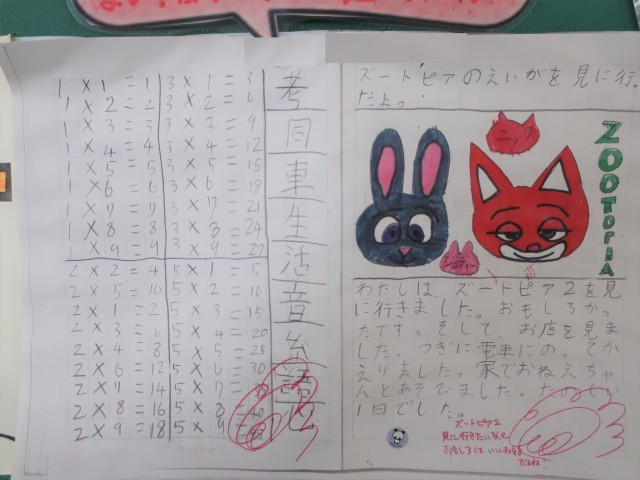 1×1=1 3×1=3
1×2=2 3×2=6
1×3=3 3×3=9
1×4=4 3×4=12
1×5=5 3×5=15
1×6=6 3×6=18
1×7=7 3×7=21
1×8=8 3×8=24
1×9=9 3×9=27
2×2=4 5×1=5
2×5=10 5×2=10
2×1=2 5×3=15
2×3=6 5×4=20
2×4=8 5×5=25
2×6=12 5×6=30
2×7=14 5×7=
2×8=16 5×8=40
2×9=18 5×9=45
考
同
車
生
活
音
語
心
ズートピアのえいがを見に行
だよ。
ニック
ジュディー
ZOOTOPIA
わたしは、ズートピア2を見
に行きました。おもしろかっ
たです。そして、お店を見ま
した。つぎに電車にの。てか
えりました。家でおねえちゃ
んとあそびました。たのしい
1日でした。
ズートピア2
見に行きたいなぁと
おもしろくていいお話
だよね